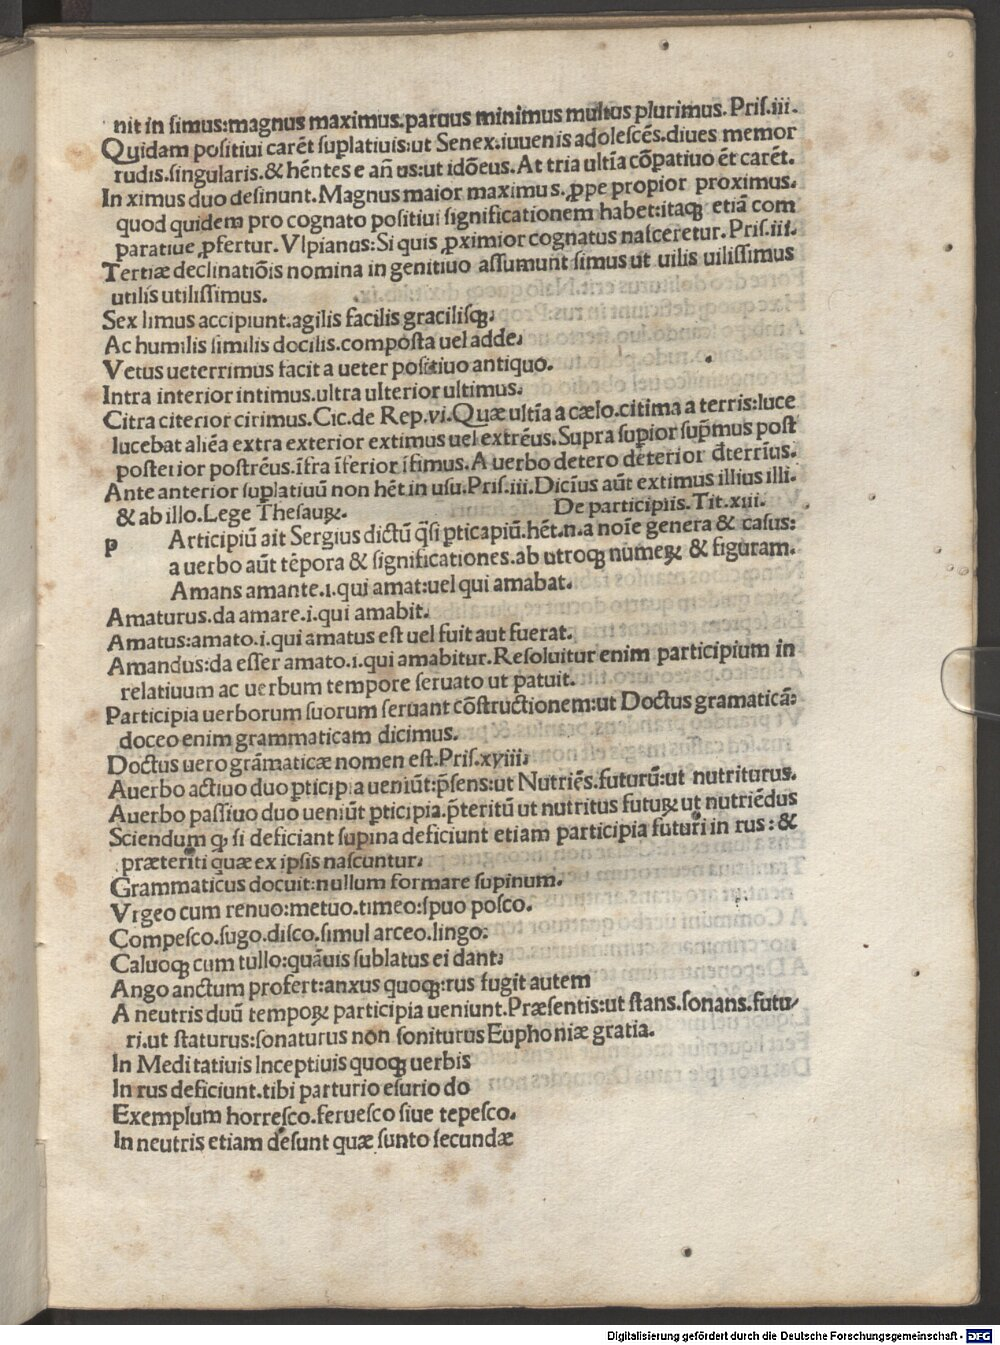 nit in simus:magnus maximus.paruus minimus multus plurimus. Pris.iii.
Quidam positiui carēt suplatiuis:ut Senex.iuuenis adolescēs.diues memor
rudis.singularis.& hēntes e añ us:ut idōeus. At tria ultīa cōpatiuo ēt carēt.
In ximus duo desinunt. Magnus maior maximus.ꝓpe propior proximus.
quod quidem pro cognato positiui significationem habet:itaqꝫ etiā com
paratiue ꝓfertur. Vlpianus:Si quis ꝓximior cognatus nasceretur. Pris.iii.
Tertiæ declinatiōis nomina in genitiuo assumunt simus ut uilis uilissimus
utilis utilissimus.
Sex limus accipiunt.agilis facilis gracilisqꝫ:
Ac humilis similis docilis.composta uel adde.
Vetus ueterrimus facit a ueter positiuo antiquo.
Intra interior intimus.ultra ulterior ultimus.
Citra citerior citimus. Cic.de Rep.vi.Quæ ultīa a cælo.citima a terris:luce
lucebat aliēa extra exterior extimus uel extrēus. Supra supior sup̄mus post
posterior postrēus.īfra īferior īfimus. A uerbo detero deterior đterrīus.
Ante anterior suplatiuū non hēt in usu.Pris.iii.Dicīus aūt extimus illius illi.
& ab illo.Lege Thesauꝝ. De participiis. Tit.xiii.
p Articipiū ait Sergius dictū q̄si ꝑticapiū.hēt.n.a noīe genera & casus:
a uerbo aūt tēpora & significationes.ab utroqꝫ numeꝝ & figuram.
Amans amante.i.qui amat:uel qui amabat.
Amaturus.da amare.i.qui amabit.
Amatus:amato.i.qui amatus est uel fuit aut fuerat.
Amandus:da esser amato.i.qui amabitur.Resoluitur enim participium in
relatiuum ac uerbum tempore seruato ut patuit.
Participia uerborum suorum seruant cōstructionem:ut Doctus gramaticā:
doceo enim grammaticam dicimus.
Doctus uero grāmaticæ nomen est.Pris.xviii:
Auerbo actiuo duo ꝑticipia ueniūt:p̄sens:ut Nutriēs.futurū:ut nutriturus.
Auerbo passiuo duo ueniūt ꝑticipia.p̄teritū ut nutritus futuꝝ ut nutriēdus
Sciendum ꝙ si deficiant supina deficiunt etiam participia futuri in rus: &
præteriti quæ ex ipsis nascuntur.
Grammaticus docuit:nullum formare supinum.
Vrgeo cum renuo:metuo.timeo:spuo posco.
Compesco.sugo.disco.simul arceo.lingo:
Caluoqꝫ cum tullo:quāuis sublatus ei dant:
Ango anctum profert:anxus quoqꝫ:rus fugit autem
A neutris duū tempoꝝ participia ueniunt.Præsentis:ut stans.sonans.futu/
ri.ut staturus:sonaturus non soniturus Euphoniæ gratia.
In Meditatiuis Inceptiuis quoqꝫ uerbis
In rus deficiunt.tibi parturio esurio do
Exemplum horresco.feruesco siue tepesco.
In neutris etiam desunt quæ sunto secundæ
Digitalisierung gefördert durch die Deutsche Forschungsgemeinschaft - DFG